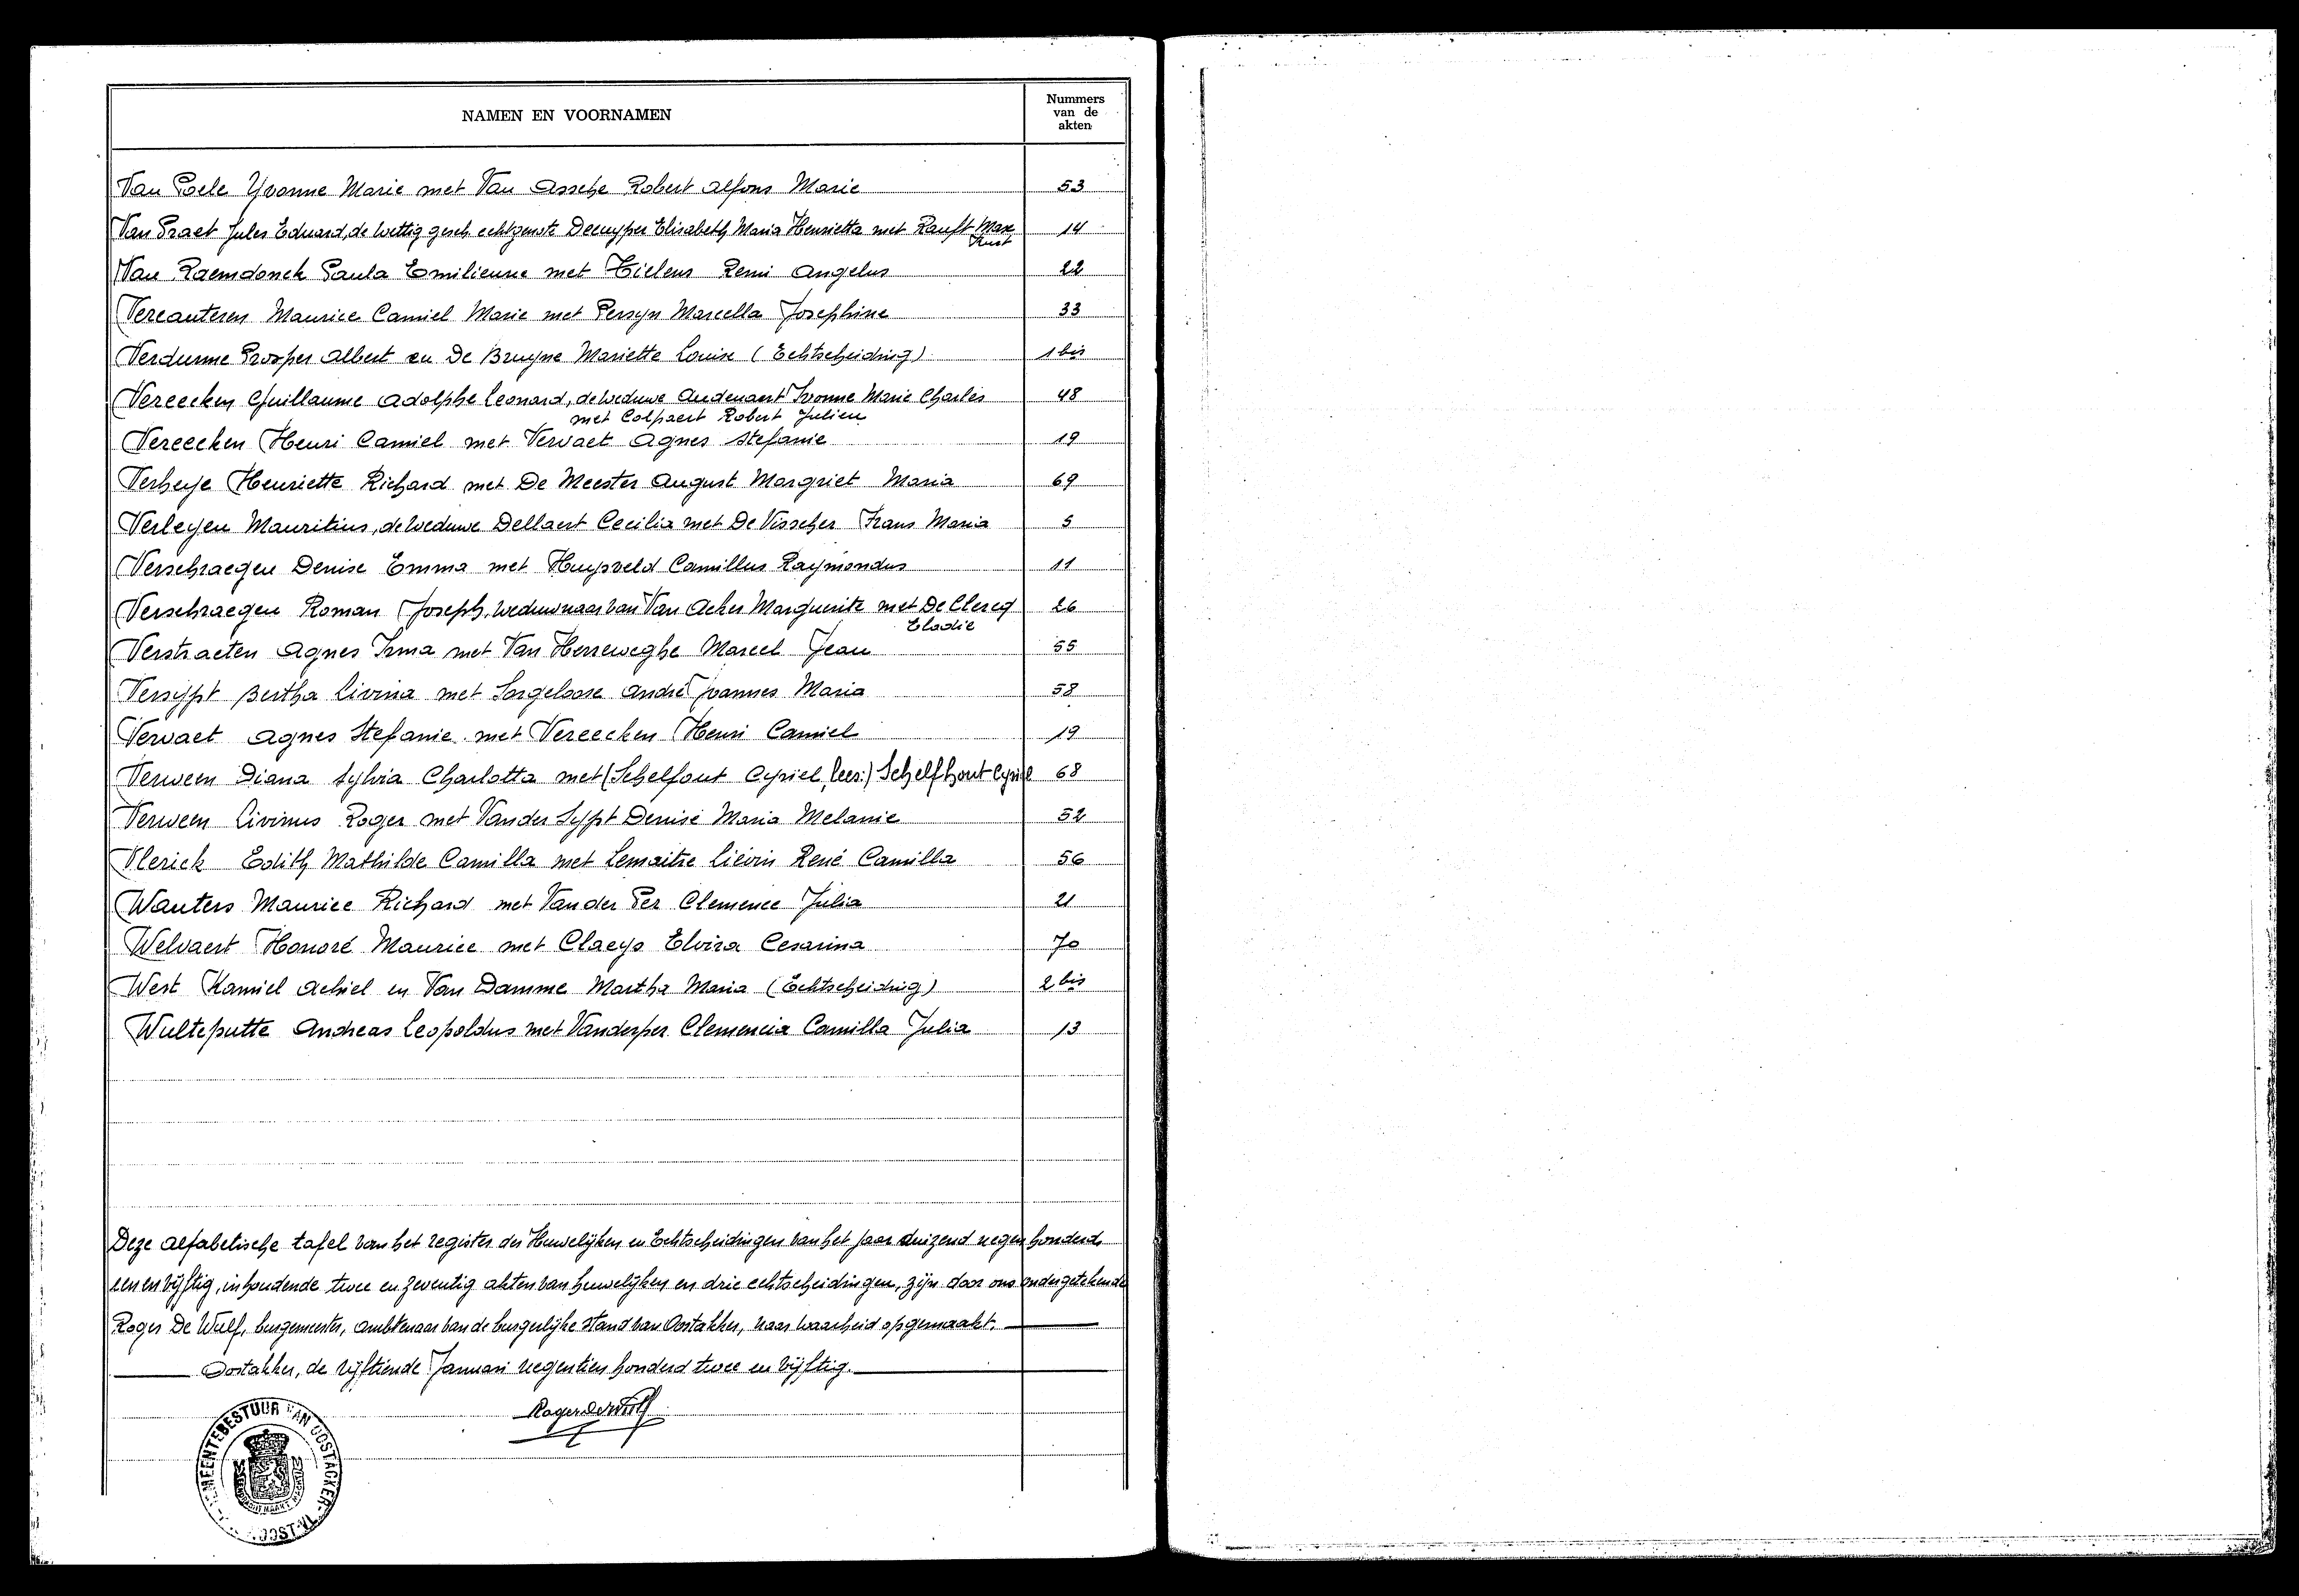 NAMEN EN VOORNAMEN
Nummers
van de
akten
Van Poele Yvonne Marie met Van Assche Robert Alfons Marie 53
Van Praet Jules Eduard, de wettig gesch. echtgenote Decuyper Elisabeth Maria Henrietta met Ranft Max 14
Van Raemdonck Paula Emilienne met Tielens Remi Angelus 22
Vercauteren Maurice Camiel Marie met Persyn Marcella Josephine 33
Verdurme Prosper Albert en De Bruyne Mariette Louise (Echtscheiding) 1 bis
Vereecken Guillaume Adolphe Leonard, de weduwe Audenaert Ivonne Marie Charles 48
met Colpaert Robert Julien
Vereecken Henri Camiel met Vervaet Agnes Stefanie 19
Verheye Henriette Richard met De Meester August Margriet Maria 69
Verleyen Mauritius, de weduwe Dellaert Cecilia met De Visscher Frans Maria 5
Verschraegen Denise Emma met Huysveld Camillus Raymondus 11
Verschraegen Roman Joseph, weduwnaar van Van Acker Marguerite met De Clercq 26
Elodie
Verstraeten Agnes Irma met Van Herreweghe Marcel Jean 55
Versypt Bertha Livina met Sorgeloose André Joannes Maria 58
Vervaet Agnes Stefanie met Vereecken Henri Camiel 19
Verween Diana Sylvia Charlotta met (Schelfout Cyriel, lees:) Schelfhout Cyriel 68
Verween Livinus Roger met Vander Sypt Denise Maria Melanie 52
Vlerick Edith Mathilde Camilla met Lemaitre Liévin René Camilla 56
Wauters Maurice Richard met Van der Per Clemence Julia 21
Welvaert Honoré Maurice met Claeys Elvira Cesarina 70
West Kamiel Achiel en Van Damme Martha Maria (Echtscheiding) 2 bis
Wulteputte Andreas Leopoldus met Vanderper Clemencia Camilla Julia 13
Deze alfabetische tafel van het register der Huwelijken en Echtscheidingen van het jaar duizend negen honderd
een en vijftig, inhoudende twee en zeventig akten van huwelijken en drie echtscheidingen, zijn door ons ondergetekende
Roger De Wulf, burgemeester, ambtenaar van de burgerlijke stand van Oostakker, naar waarheid opgemaakt.
Oostakker, de vijftiende Januari negentien honderd twee en vijftig.
Roger De Wulf
GEMEENTEBESTUUR VAN OOSTACKER
OOST-VL.